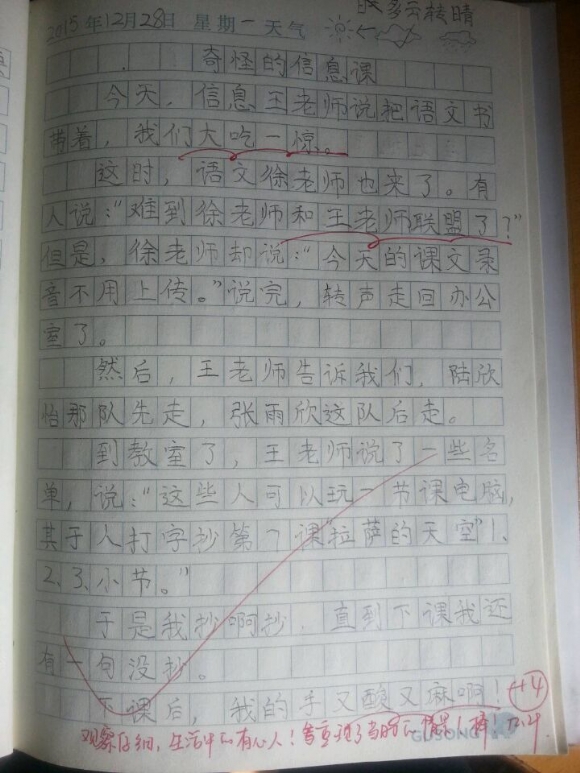 多云转晴
2015年12月28日 星期一 天气
奇怪的信息课
今天，信息王老师说把语文书
带着，我们大吃一惊。
这时，语文徐老师也来了。有
人说：“难到徐老师和王老师联盟了？”
但是，徐老师却说：“今天的课文录
音不用上传。”说完，转声走回办公
室了。
然后，王老师告诉我们，陆欣
怡那队先走，张雨欣这队后走。
到教室了，王老师说了一些名
单，说：“这些人可以玩一节课电脑，
其于人打字抄第7课“拉萨的天空”1、
2、3、小节。”
于是我抄啊抄，直到下课我还
有一句没抄。
下课后，我的手又酸又麻啊！
+4
观察仔细，生活中的有心人！
GUSONG